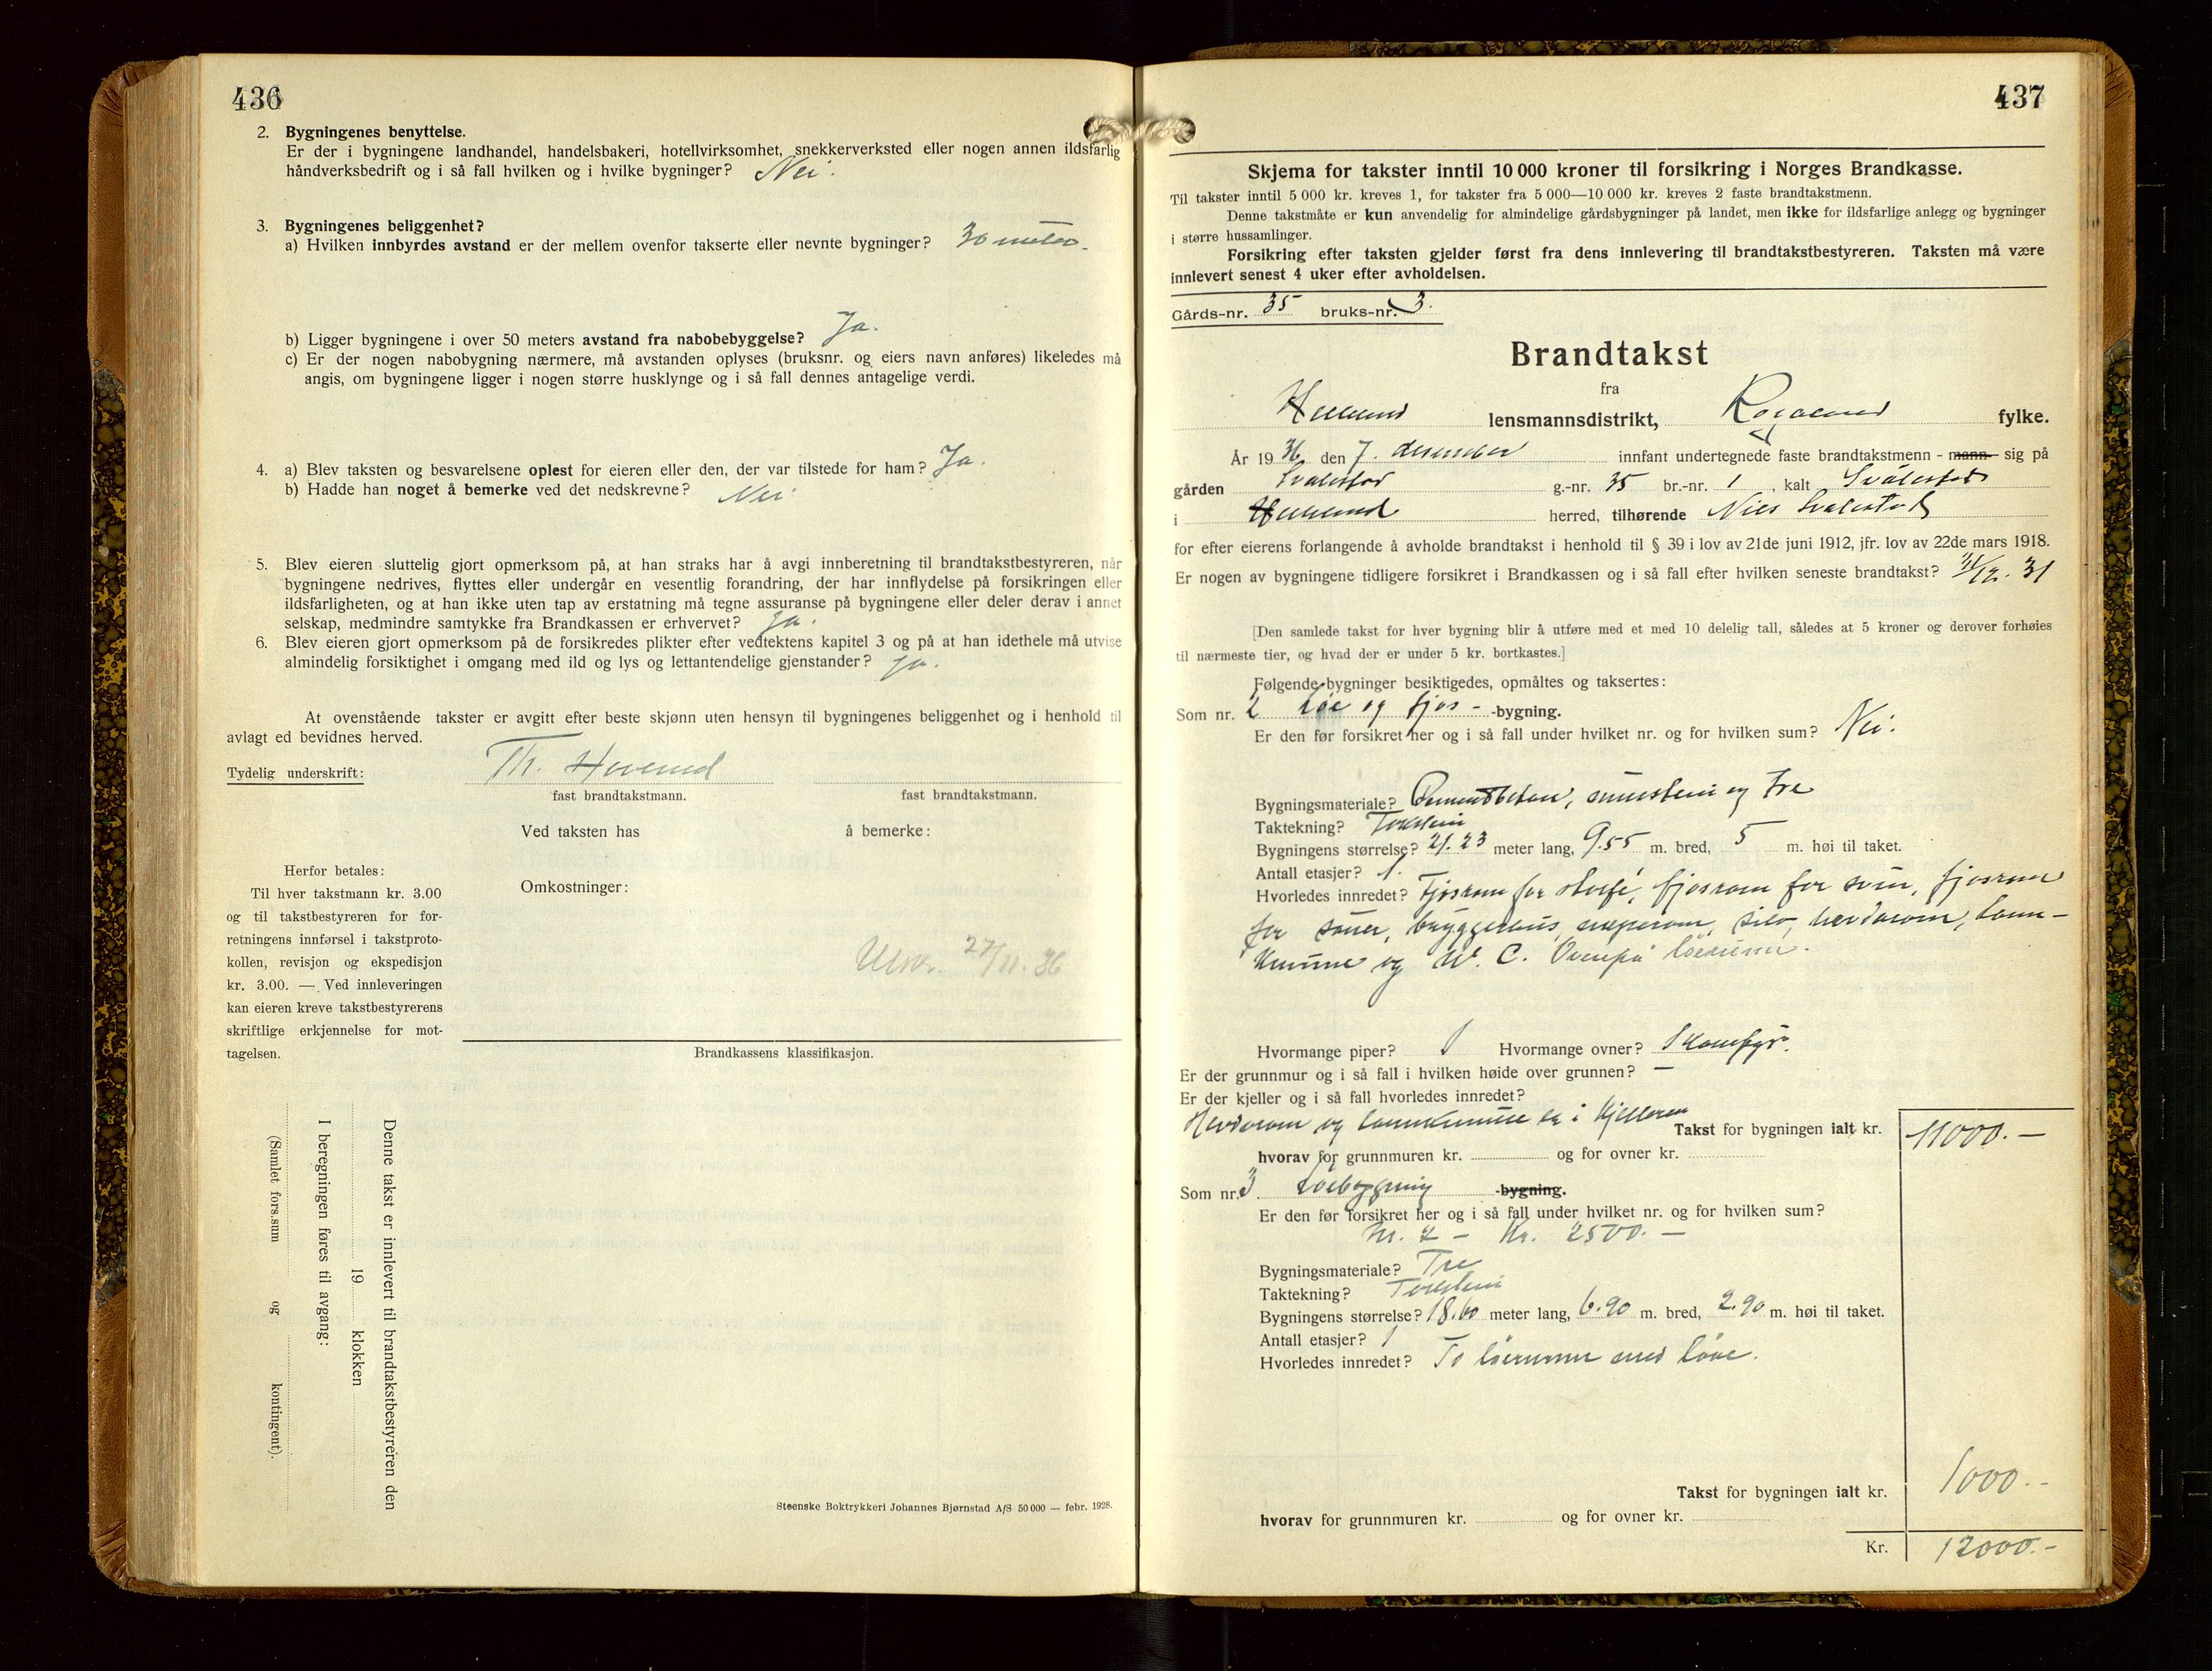 436
2. Bygningenes benyttelse.
Er der i bygningene landhandel, handelsbakeri, hotellvirksomhet, snekkerverksted eller nogen annen ildsfarlig
håndverksbedrift og i så fall hvilken og i hvilke bygninger? Nei.
3. Bygningenes beliggenhet?
a) Hvilken innbyrdes avstand er der mellem ovenfor takserte eller nevnte bygninger? 30 meter.
b) Ligger bygningene i over 50 meters avstand fra nabobebyggelse? Ja.
c) Er der nogen nabobygning nærmere, må avstanden oplyses (bruksnr. og eiers navn anføres) likeledes må
angis, om bygningene ligger i nogen større husklynge og i så fall dennes antagelige verdi.
4. a) Blev taksten og besvarelsene oplest for eieren eller den, der var tilstede for ham? Ja.
b) Hadde han noget å bemerke ved det nedskrevne? Nei.
5. Blev eieren sluttelig gjort opmerksom på, at han straks har å avgi innberetning til brandtakstbestyreren, når
bygningene nedrives, flyttes eller undergår en vesentlig forandring, der har innflydelse på forsikringen eller
ildsfarligheten, og at han ikke uten tap av erstatning må tegne assuranse på bygningene eller deler derav i annet
selskap, medmindre samtykke fra Brandkassen er erhvervet? Ja.
6. Blev eieren gjort opmerksom på de forsikredes plikter efter vedtektens kapitel 3 og på at han idethele må utvise
almindelig forsiktighet i omgang med ild og lys og lettantendelige gjenstander? Ja.
At ovenstående takster er avgitt efter beste skjønn uten hensyn til bygningenes beliggenhet og i henhold til
avlagt ed bevidnes herved.
Tydelig underskrift: Th.
fast brandtakstmann. fast brandtakstmann.
Ved taksten has å bemerke:
Herfor betales:
Til hver takstmann kr. 3.00
og til takstbestyreren for for-
retningens innførsel i takstproto-
kollen, revisjon og ekspedisjon
kr. 3.00. — Ved innleveringen
kan eieren kreve takstbestyrerens
skriftlige erkjennelse for mot-
tagelsen.
Omkostninger:
27/11. 36
Brandkassens klassifikasjon.
Denne takst er innlevert til brandtakstbestyreren den
19 klokken
I beregningen føres til avgang:
(Samlet fors.sum og kontingent).
Steenske Boktrykkeri Johannes Bjørnstad A/S 50 000 — febr. 1928.
437
Skjema for takster inntil 10 000 kroner til forsikring i Norges Brandkasse.
Til takster inntil 5 000 kr. kreves 1, for takster fra 5 000—10 000 kr. kreves 2 faste brandtakstmenn.
Denne takstmåte er kun anvendelig for almindelige gårdsbygninger på landet, men ikke for ildsfarlige anlegg og bygninger
i større hussamlinger.
Forsikring efter taksten gjelder først fra dens innlevering til brandtakstbestyreren. Taksten må være
innlevert senest 4 uker efter avholdelsen.
Gårds-nr. 35 bruks-nr. 3.
Brandtakst
fra
Helleland lensmannsdistrikt, Rogaland fylke.
År 1936 den 7. desember innfant undertegnede faste brandtakstmenn - mann sig på
gården Svalestad g.-nr. 35 br.-nr. 1, kalt Svalestad
i Helleland herred, tilhørende Nils Svalestad
for efter eierens forlangende å avholde brandtakst i henhold til § 39 i lov av 21de juni 1912, jfr. lov av 22de mars 1918.
Er nogen av bygningene tidligere forsikret i Brandkassen og i så fall efter hvilken seneste brandtakst? /12. 31
[Den samlede takst for hver bygning blir å utføre med et med 10 delelig tall, således at 5 kroner og derover forhøies
til nærmeste tier, og hvad der er under 5 kr. bortkastes.]
Følgende bygninger besiktigedes, opmåltes og taksertes:
Som nr. 2 Løe og fjos- -bygning.
Er den før forsikret her og i så fall under hvilket nr. og for hvilken sum? Nei.
Bygningsmateriale? Cementbeton, murstein og tre
Taktekning? Takstein
Bygningens størrelse? 21.23 meter lang, 9.55 m. bred, 5 m. høi til taket.
Antall etasjer? 1.
Hvorledes innredet? Fjosrom for storfe, fjosrom for svin, fjosrom
for sauer, bryggehus, neperom, silo, hevdarom, lann-
kumme og W. C. Ovenpå løerumm.
Hvormange piper? 1 Hvormange ovner? 1 komfyr.
Er der grunnmur og i så fall i hvilken høide over grunnen? —
Er der kjeller og i så fall hvorledes innredet?
Hevdarom og lannkumme er i kjelleren
Takst for bygningen ialt kr. 11000.—
hvorav for grunnmuren kr. og for ovner kr.
Som nr. 3 Løebygning -bygning.
Er den før forsikret her og i så fall under hvilket nr. og for hvilken sum?
Nr. 2 — Kr. 2500.—
Bygningsmateriale? Tre
Taktekning? Takstein
Bygningens størrelse? 18.60 meter lang, 6.90 m. bred, 2.90 m. høi til taket.
Antall etasjer? 1
Hvorledes innredet? To løerumm med låve.
Takst for bygningen ialt kr. 1000.—
hvorav for grunnmuren kr. og for ovner kr.
Kr. 12000.—